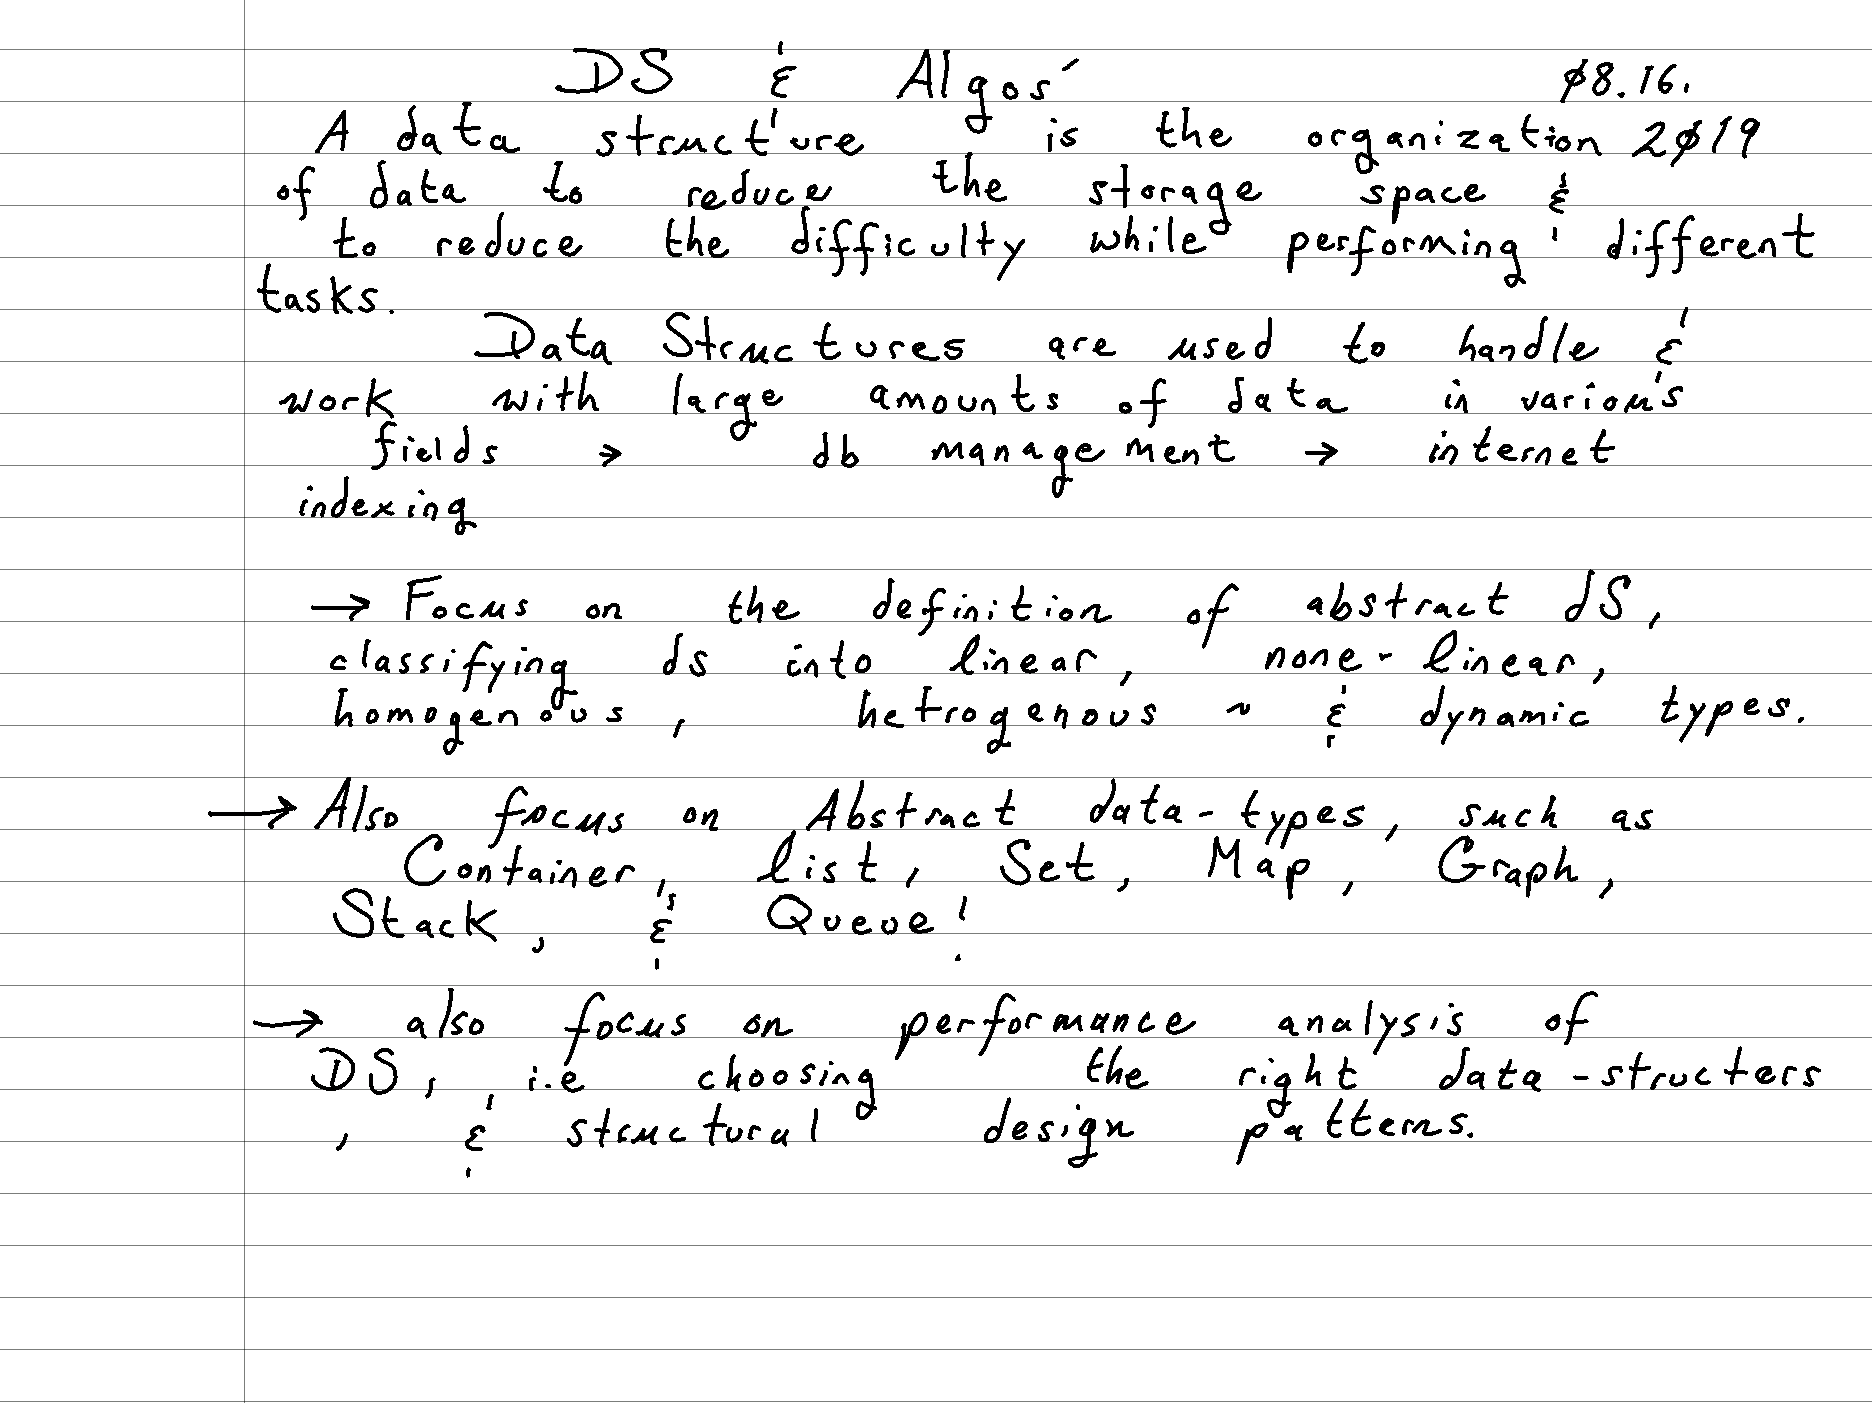 DS & Algos' 08.16.
A data structure is the organization 2019
of data to reduce the storage space &
to reduce the difficulty while performing different
tasks.
Data Structures are used to handle &
work with large amounts of data in various
fields → db management → internet
indexing
→ Focus on the definition of abstract dS,
classifying ds into linear, none-linear,
homogenous, hetrogenous ~ & dynamic types.
→ Also focus on Abstract data-types, such as
Container, list, Set, Map, Graph,
Stack, & Queue!
→ also focus on performance analysis of
DS, i.e choosing the right data-structers
, & structural design patterns.